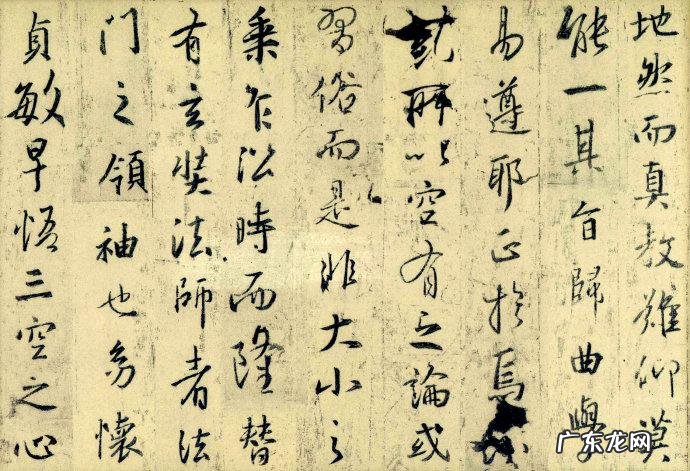 地然而真教難仰莫
能一其旨歸曲學
易遵耶正於焉
所以空有之論或
習俗而是非大小之
乘乍沿時而隆替
有玄奘法師者法
門之領袖也幼懷
貞敏早悟三空之心
广东龙网